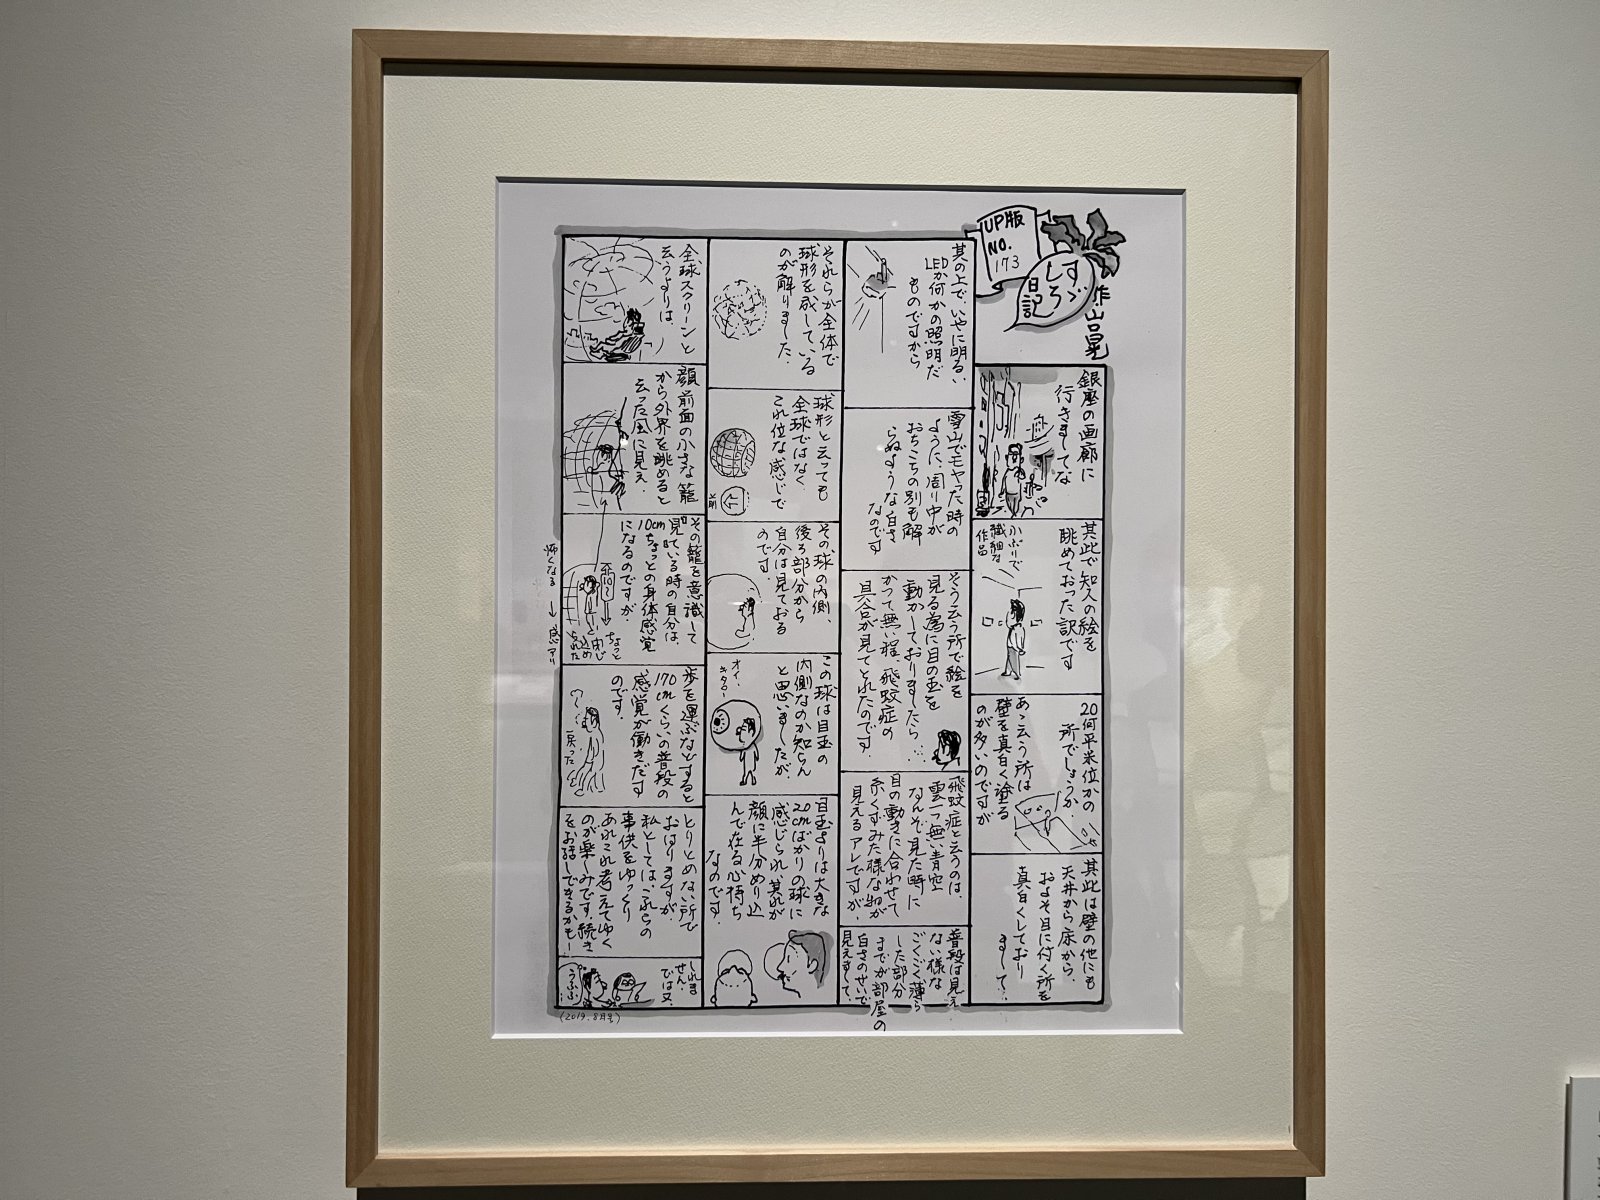 UP版
NO.
173
すゞ
しろ
日記
作・山口晃
銀座の画廊に
行きましてな
其此で知人の絵を
眺めておった訳です
小ぶりで
繊細な
作品
20何平米位かの
所でしょうか
あゝ云う所は
壁を真白く塗る
のが多いのですが
其此は壁の他にも
天井から床から、
およそ目に付く所を
真白くしており
まして、
其の上で、いやに明るい
LEDか何かの照明だ
ものですから
雪山でモヤった時の
ように、周り中が
おちこちの別も解
らぬような白さ
なのです
そう云う所で絵を
見る為に目の玉を
動かしておりましたら、
かつて無い程、飛蚊症の
具合が見てとれたのです
飛蚊症と云うのは、
雲一つ無い青空
なんぞ見た時に
目の動きに合わせて
糸くずみた様な物が
見えるアレですが、
普段は見え
ない様な
ごくごく薄ら
した部分
までが部屋の
白さのせいで
見えまして、
それらが全体で
球形を成している
のが解りました。
球形と云っても
全球ではなく、
これ位な感じで
その球の内側、
後ろ部分から
自分は見ておる
のです。
この球は目玉の
内側なのか知らん
と思いましたが、
オイ、
キタロー
目玉よりは大きな
20cmばかりの球に
感じられ、其れが
顔に半分めり込
んで在る心持ち
なのです。
全球スクリーンと
云うよりは、
顔前面の小さな籠
から外界を眺めると
云った風に見え、
その籠を意識して
見ている時の自分は、
10cmちょっとの身体感覚
になるのですが、
ちょっと
閉じ
込め
られた
怖くなる → 感アリ
歩を運ぶなどすると
170cmくらいの普段の
感覚が働きだす
のです。
戻った
とりとめない所で
おはりますが、
私としては、これらの
事供をゆっくり
あれこれ考えてゆく
のが楽しみです。続き
をお話しできるかも!
しれま
せん。
では又、
うふふ
(2019.8月号)